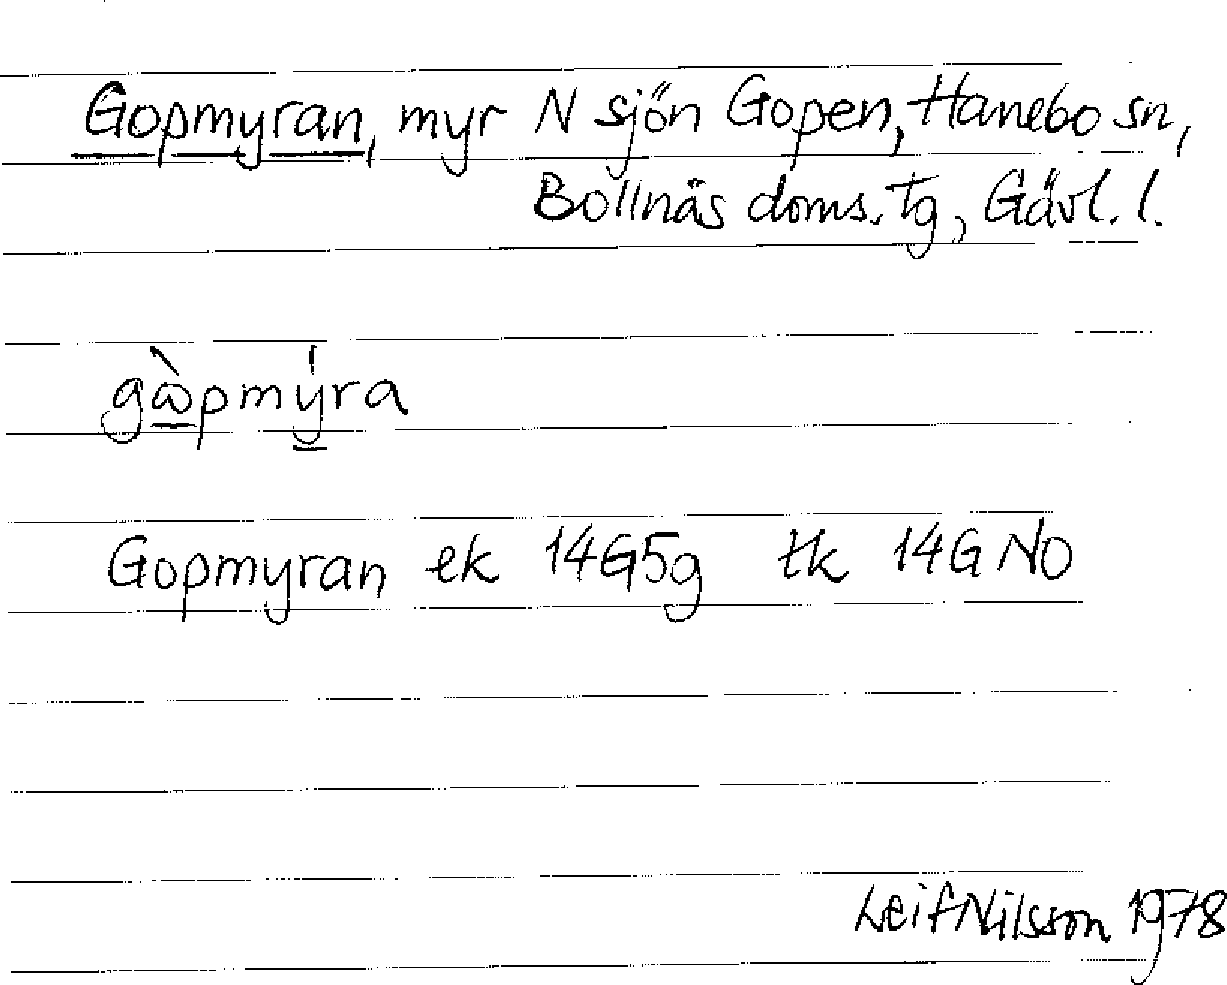 Gopmyran, myr N sjön Gopen, Hanebo sn,
Bollnäs doms. tg, Gävl. l.
gꞷ̀pmýra
Gopmyran ek 14G5g tk 14G NO
Leif Nilsson 1978